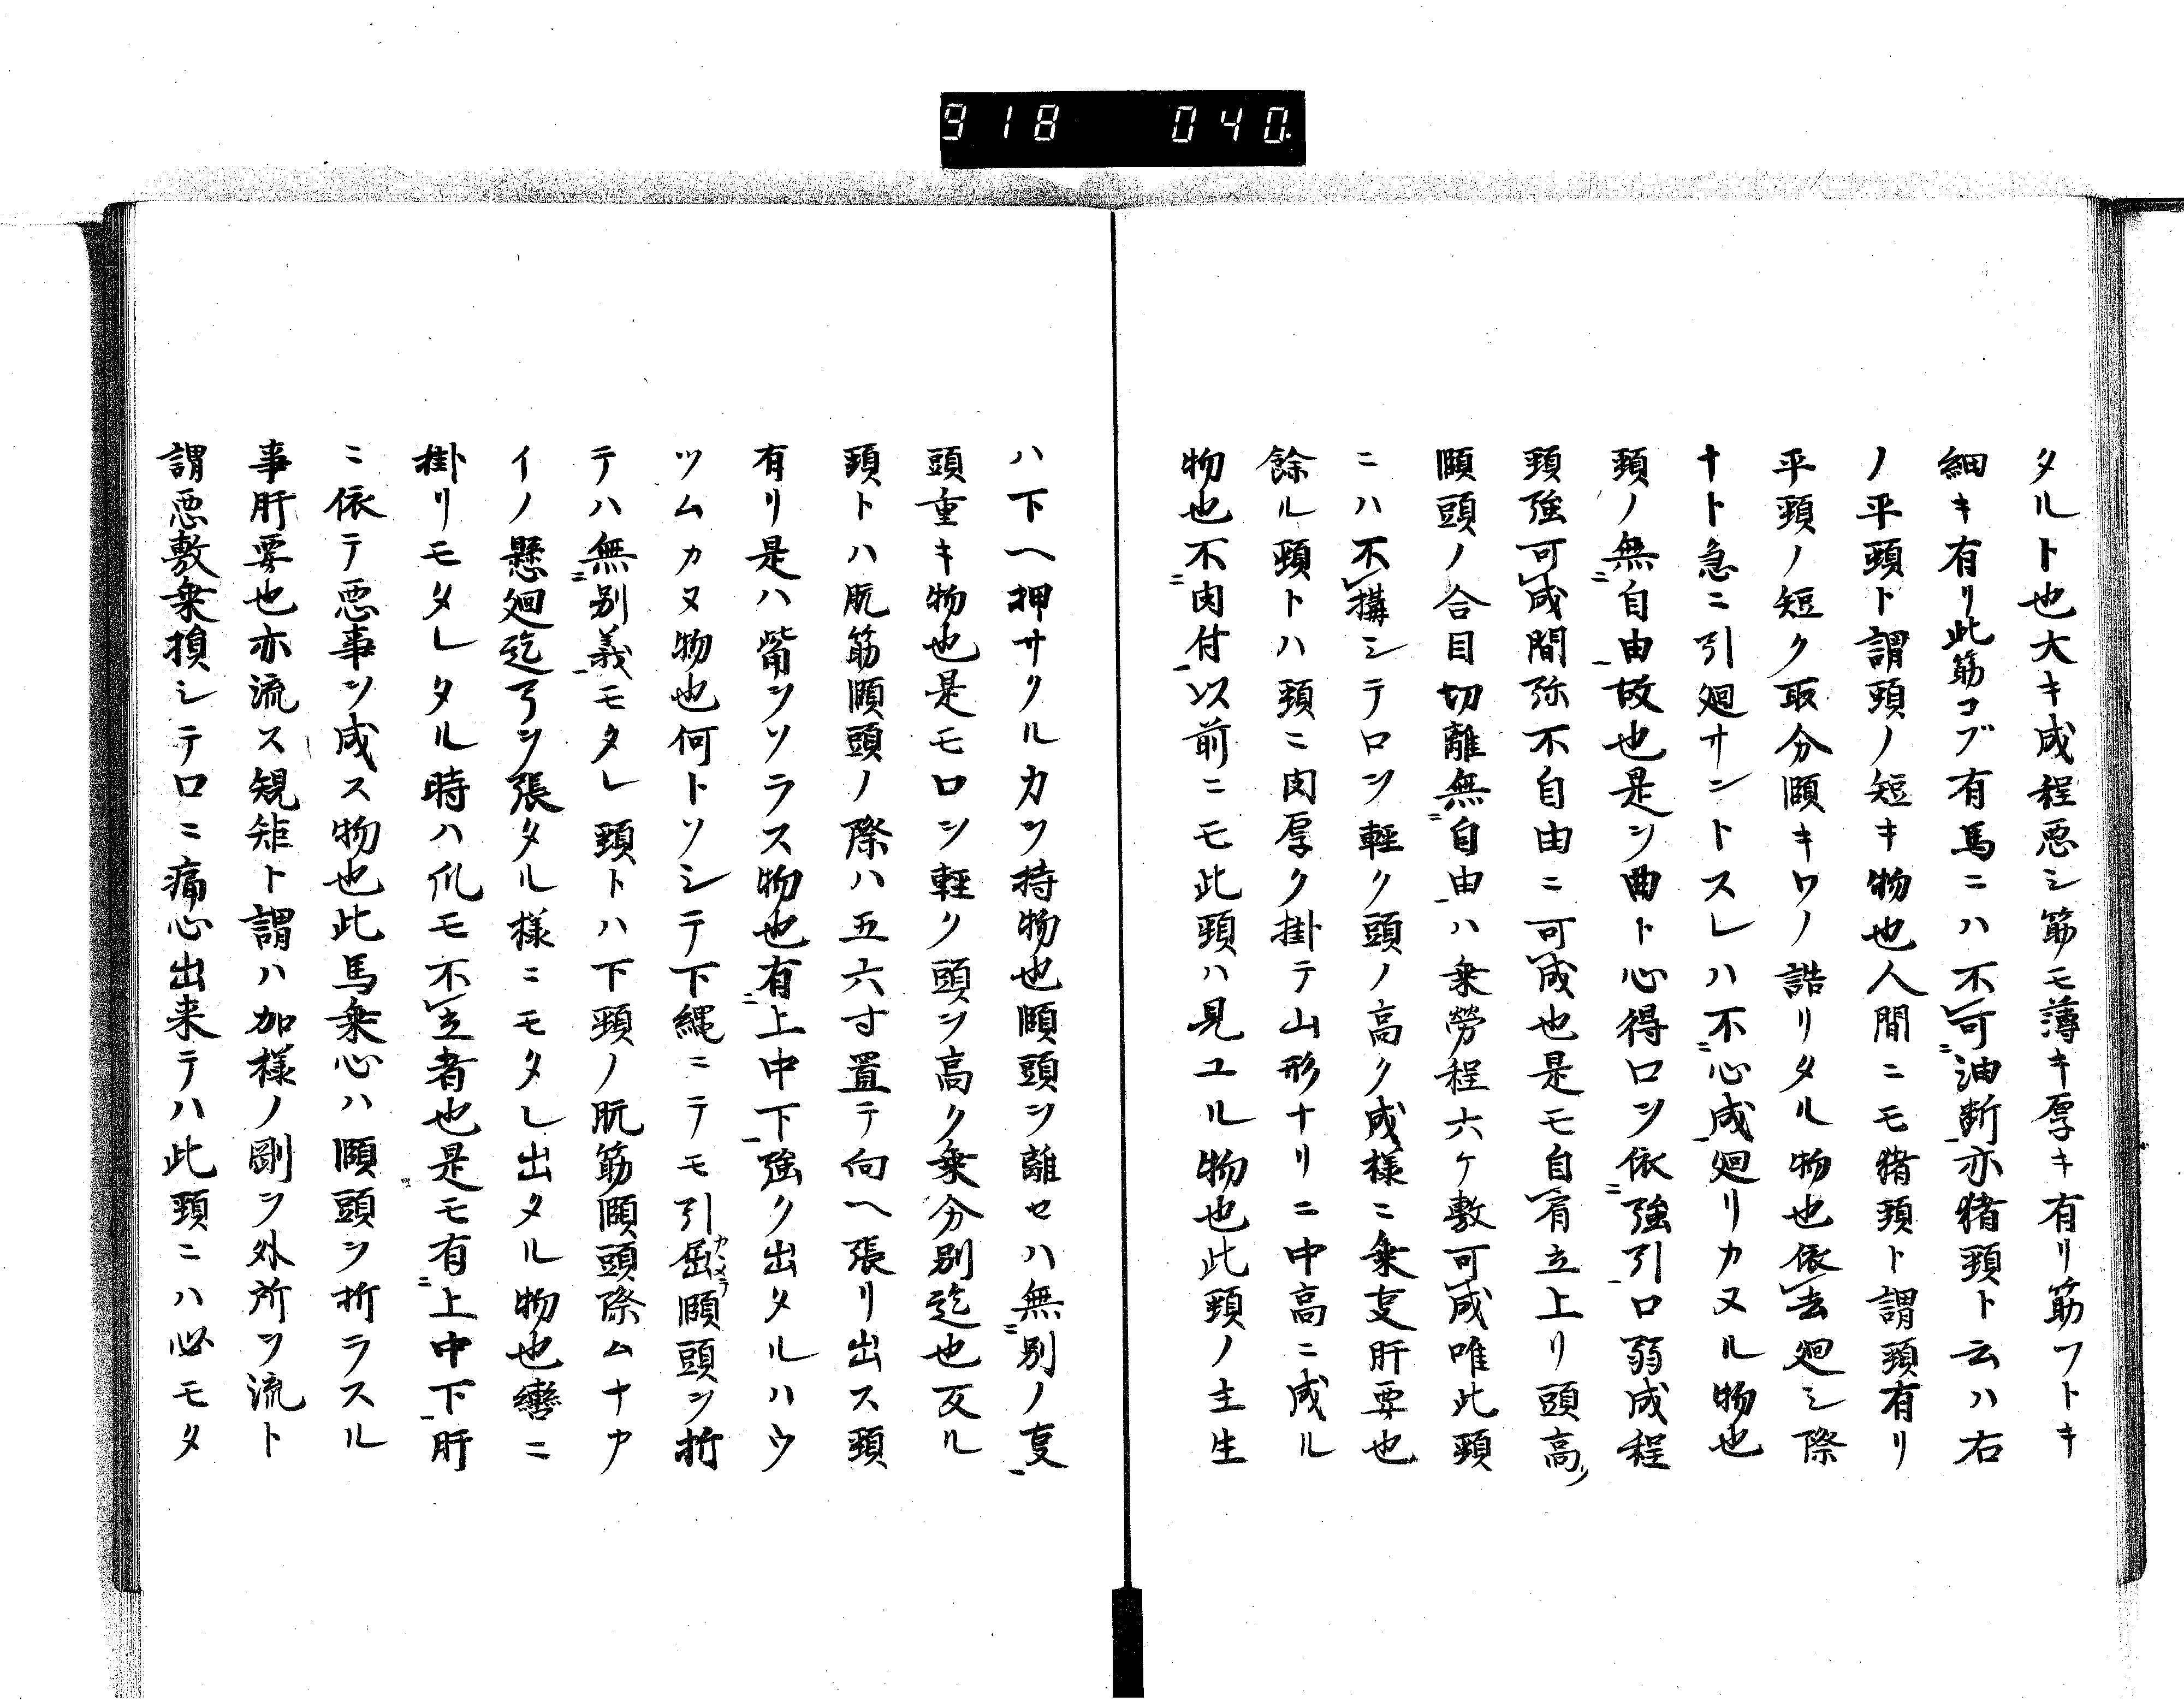 918 040
タルト也大キ成程悪シ筋モ薄キ厚キ有リ筋フトキ
細キ有リ此筋コブ有馬ニハ不レ可ニ油断一亦猪頸ト云ハ右
ノ平頸ト謂頸ノ短キ物也人間ニモ猪頸ト謂頸有リ
平頸ノ短ク取分頤キワノ詰リタル物也依レ去廻シ際
ナト急ニ引廻サントスレハ不ニ心成一廻リカヌル物也
頸ノ無ニ自由一故也是ヲ曲ト心得口ヲ依ニ強引一口弱成程
頸強可レ成間弥不自由ニ可レ成也是モ自レ肩立上リ頭高
頤頭ノ合目切離無ニ自由一ハ乗労程六ケ敷可レ成唯此頸
ニハ不レ搆シテ口ヲ軽ク頭ノ高ク成様ニ乗叓肝要也
餘ル頸トハ頸ニ肉厚ク掛テ山形ナリニ中高ニ成ル
物也不ニ肉付一以前ニモ此頸ハ見ユル物也此頸ノ主生
ハ下ヘ押サクルカヲ持物也頤頭ヲ離セハ無ニ別ノ叓一
頭重キ物也是モ口ヲ軽ク頭ヲ高ク乗分別迄也反ル
頸トハ肮筋頤頭ノ際ハ五六寸置テ向ヘ張リ出ス頸
有リ是ハ觜ヲソラス物也有ニ上中下一強ク出タルハウ
ツムカヌ物也何トソシテ下縄ニテモ引屈カヽメラ頤頭ヲ折
テハ無ニ別義一モタレ頸トハ下頸ノ肮筋頤頭際ムナカ
イノ懸廻迄弓ヲ張タル様ニモタレ出タル物也轡ニ
掛リモタレタル時ハ爪モ不レ立者也是モ有ニ上中下一肝
ニ依テ悪事ヲ成ス物也此馬乗心ハ頤頭ヲ折ラスル
事肝要也亦流ス規矩ト謂ハ加様ノ剛ヲ外所ヲ流ト
謂悪敷乗損シテ口ニ痛心出来テハ此頸ニハ必モタ